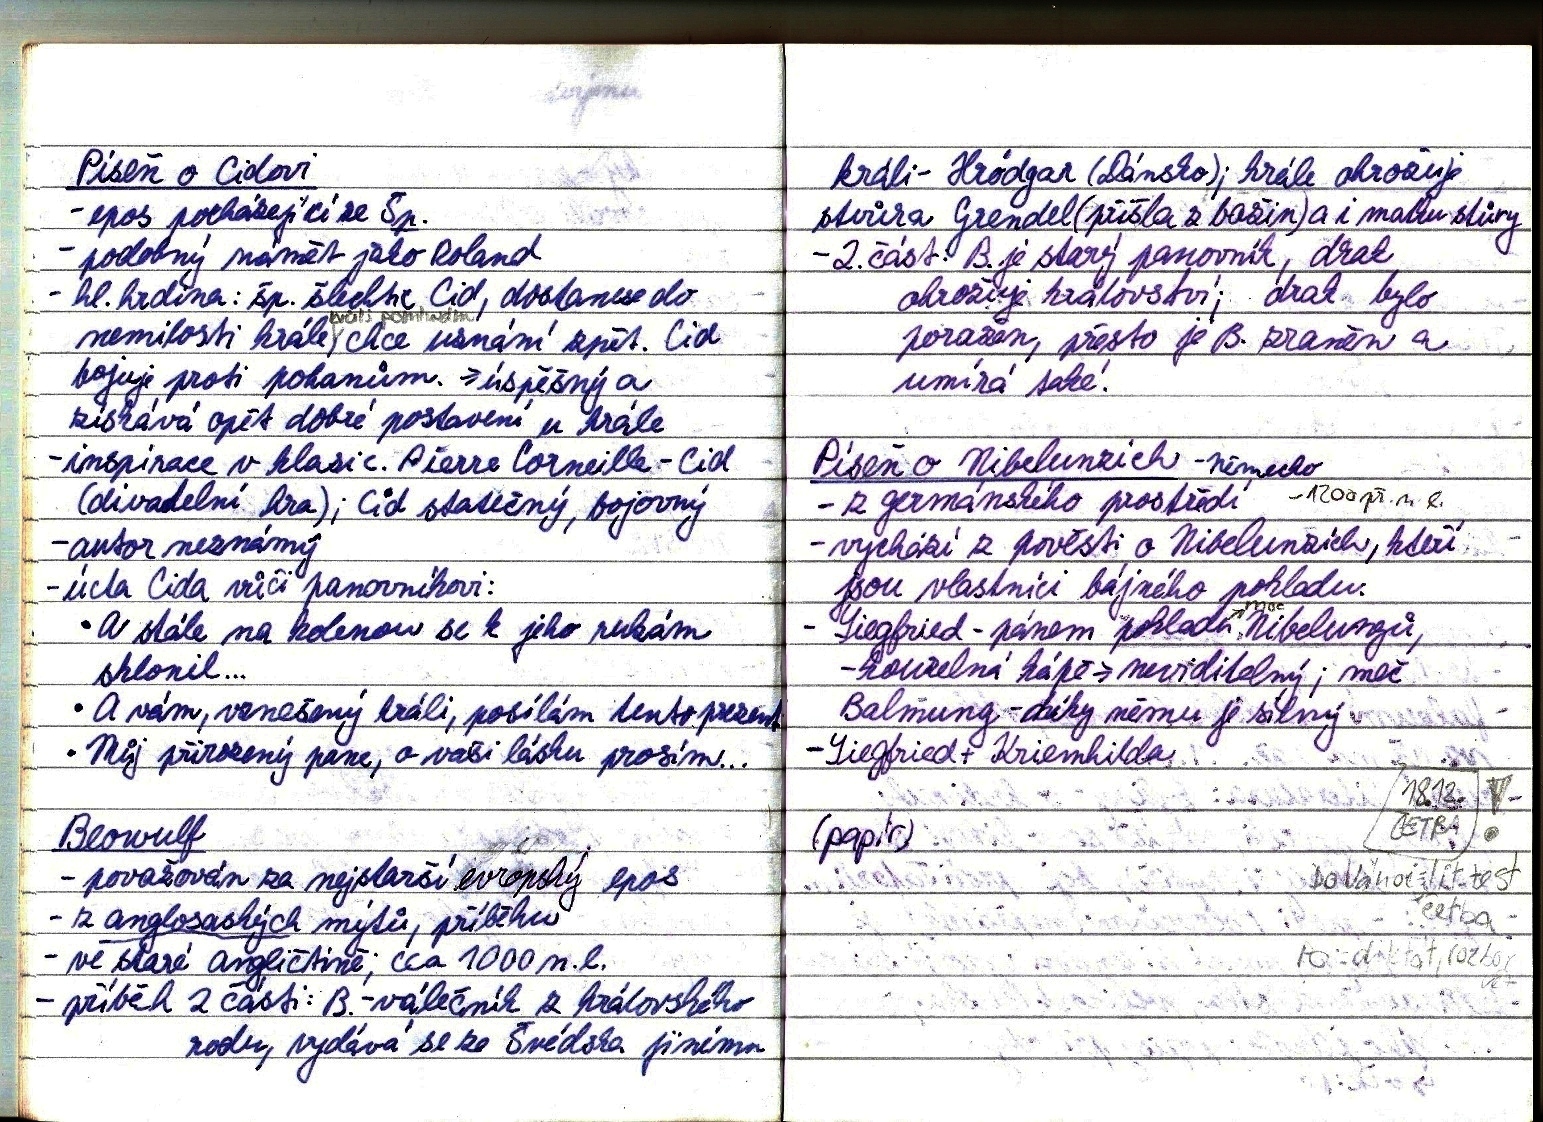 Píseň o Cidovi
- epos pocházející ze Šp.
- podobný námět jako Roland
- hl. hrdina: šp. šlechtic Cid, dostane se do
nemilosti krále, chce uznání zpět. Cid
bojuje proti pohanům. => úspěšný a
získává opět dobré postavení u krále
- inspirace v klasic. Pierre Corneille - Cid
(divadelní hra); Cid statečný, bojovný
- autor neznámý
- úcta Cida vůči panovníkovi:
• A stále na kolenou se k jeho rukám
sklonil...
• A vám, vznešený králi, posílám tento prezent
• Můj přirozený pane, o vaši lásku prosím...
Beowulf
- považován za nejstarší evropský epos
- z anglosaských mýtů, příběhů
- ve staré angličtině; cca 1000 n. l.
- příběh 2 části: B. - válečník z královského
rodu, vydává se ze Švédska jinému
králi - Hródgar (Dánsko); krále ohrožuje
stvůra Grendel (přišla z bažin) a i matku stvůry
- 2. část: B. je starý panovník, drak
ohrožuje království; drak bylo
poražen, přesto je B. zraněn a
umírá také.
Píseň o Nibelunzích - německo
- z germánského prostředí - 1200 př. n. l.
- vychází z pověsti o Nibelunzích, kteří
jsou vlastníci bájného pokladu.
moc
- Siegfried - pánem pokladu Nibelungů,
- kouzelná kápě => neviditelný; meč
Balmung - díky němu je silný
- Siegfried + Kriemhilda
18.12.
ČETBA
(papír)
Do Vánoc: lit. test
četba
diktát, rozbor